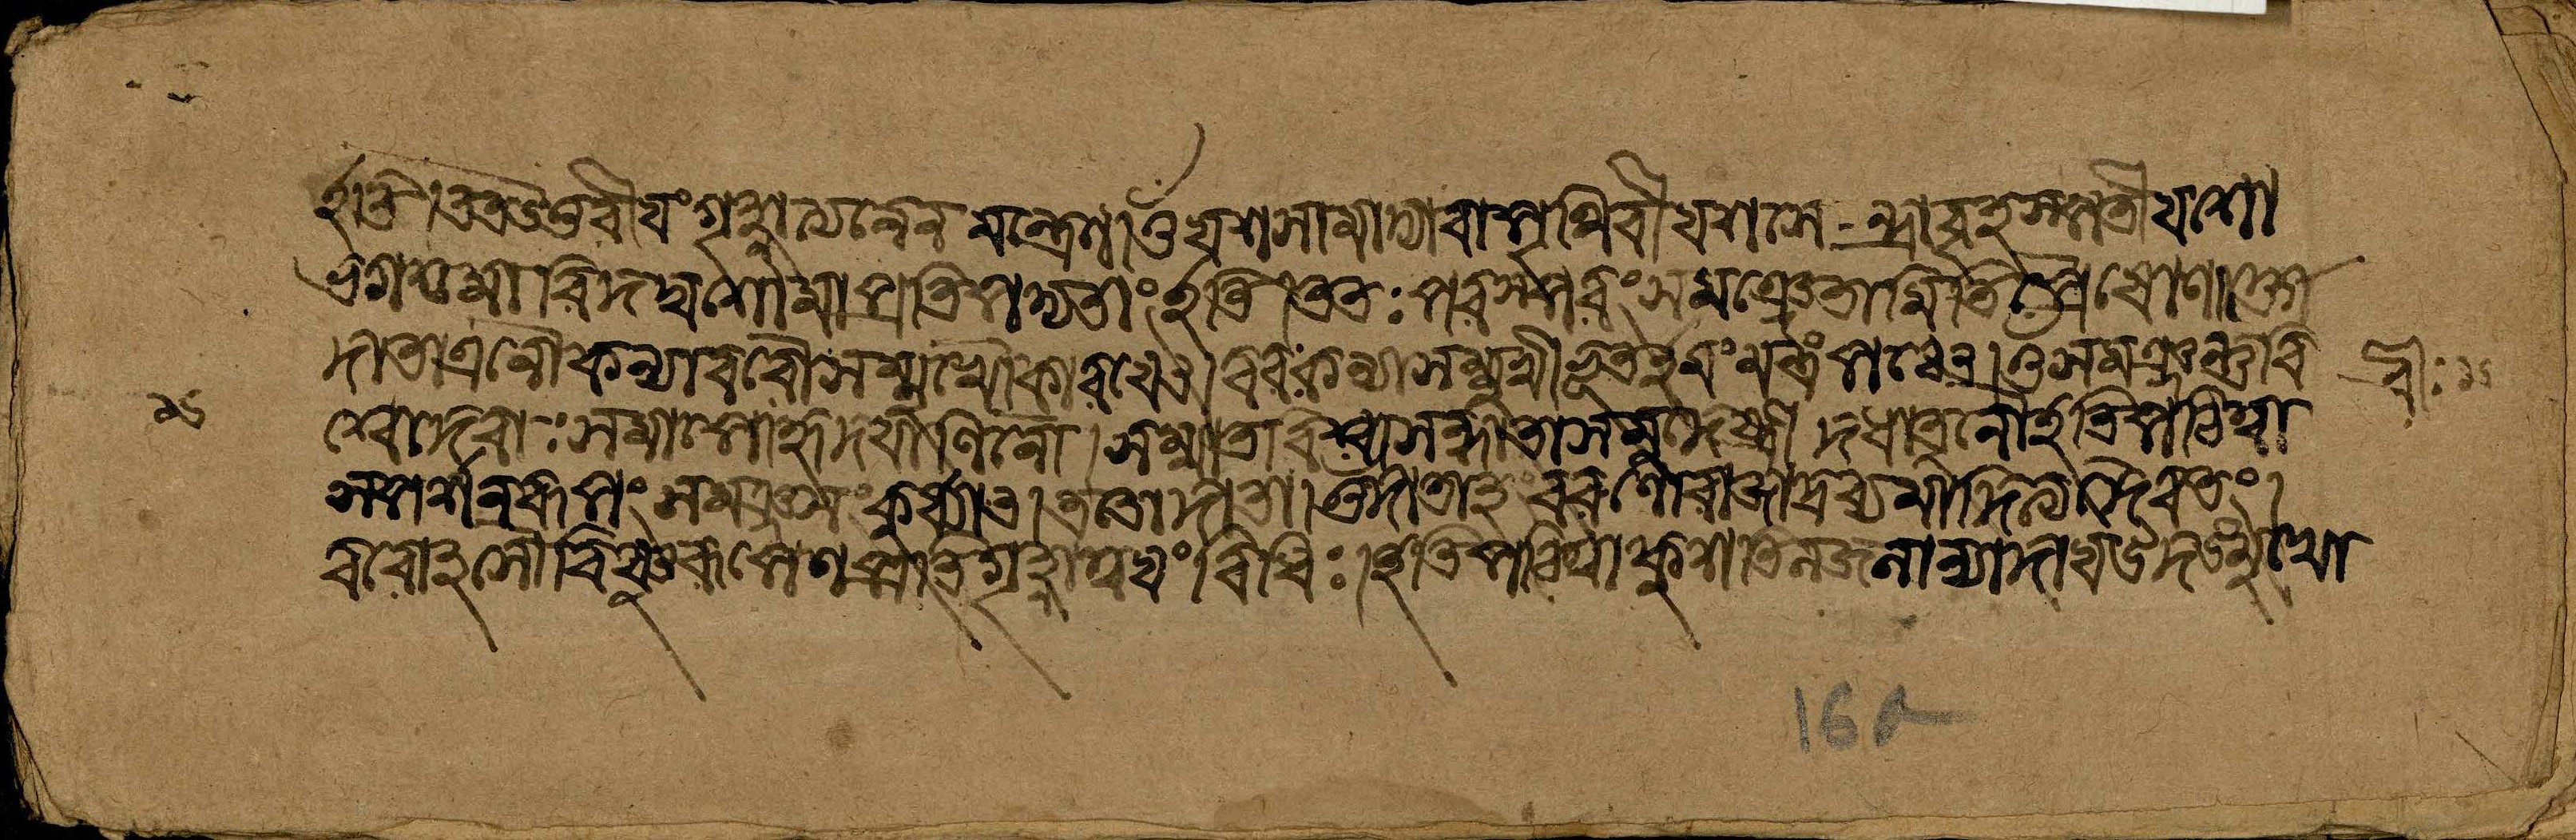 ইতি । তত উত্তরীয়ং গৃহ্ণাত্যনেন মন্ত্রেণ । ওঁ যশসা মা দ্যাবাপৃথিবী যশসেন্দ্রাবৃহস্পতী যশো
ভগশ্চ মা বিদদ্যশো মা প্রতিপদ্যতাং ইতি । ততঃ পরস্পরং সমঞ্জেথামিতি প্রৈষেণ
দাতা এনৌ কন্যাবরৌ সম্মুখৌ কারয়েৎ । বরঃ কন্যাসম্মুখীভূত ইমং মন্ত্রং পঠেৎ । ওঁ সমঞ্জন্তু বি বি: ১৬
১৬ শ্বেদেবাঃ সমাপো হৃদয়ানি নৌ । সম্মাতরিশ্বা সন্ধাতা সমুদেষ্ট্রী দধাতু নৌ ইতি পঠিত্বা
সমঞ্জনং কুর্য্যাৎ । ততো দাতা । ওঁ দাতাহং বরুণো রাজা দ্রব্যমাদিত্যদৈবতং ।
বরোঽসৌ বিষ্ণুরূপেণ প্রতিগৃহ্ণাত্বয়ং বিধিঃ । ইতি পঠিত্বা কুশতিলজলান্যাদায় উদঙ্মুখো
16a